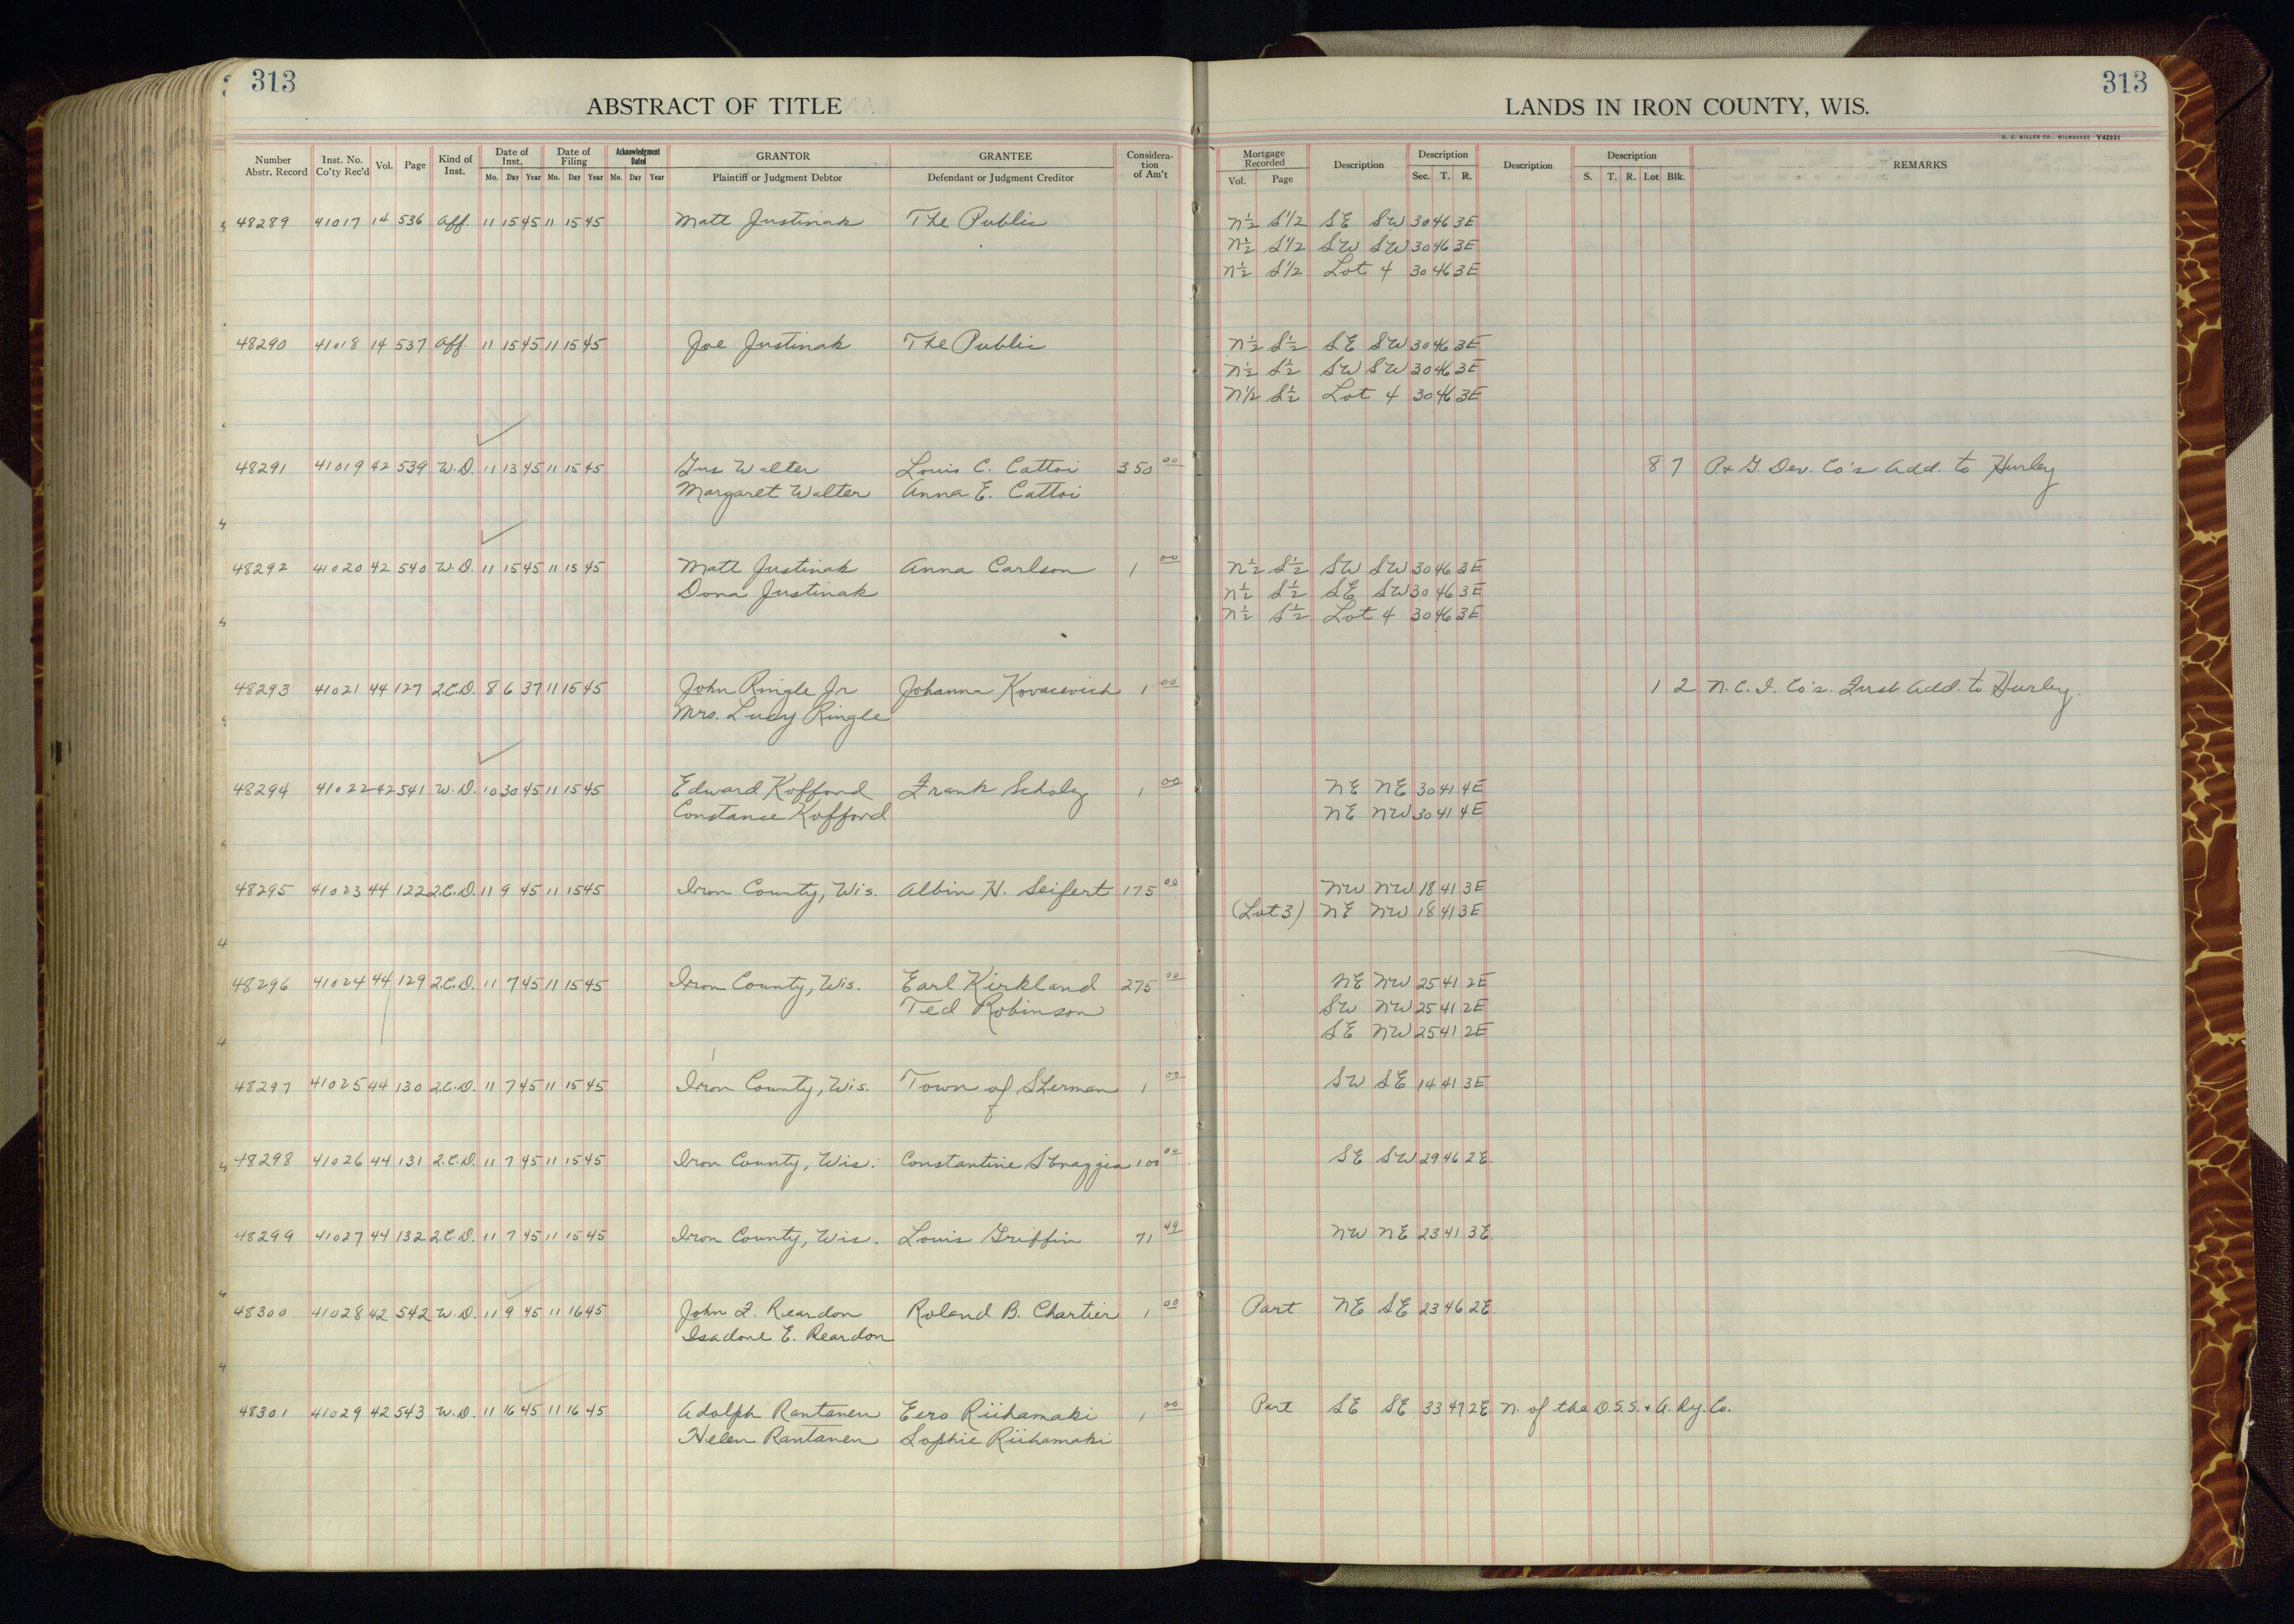 313
ABSTRACT OF TITLE
LANDS IN IRON COUNTY, WIS.
313
H. C. MILLER CO., MILWAUKEE Y42931
Number Abstr. Record Inst. No. Co'ty Rec'd Vol. Page Kind of Inst. Date of Inst. Mo. Day Year Date of Filing Mo. Day Year Acknowledgment Dated Mo. Day Year GRANTOR Plaintiff or Judgment Debtor GRANTEE Defendant or Judgment Creditor Considera-tion of Am't Mortgage Recorded Vol. Page Description Description Sec. T. R. Description Description S. T. R. Lot Blk. REMARKS
48289 41017 14 536 Aff. 11 15 45 11 15 45 Matt Justinak The Public N½ S1/2 SE SW 30 46 3E
N½ S1/2 SW SW 30 46 3E
N½ S1/2 Lot 4 30 46 3E
48290 41018 14 537 Aff. 11 15 45 11 15 45 Joe Justinak The Public N½ S½ SE SW 30 46 3E
N½ S½ SW SW 30 46 3E
N1/2 S½ Lot 4 30 46 3E
48291 41019 42 539 W.D. 11 13 45 11 15 45 Gus Walter Louis C. Cattoi 350 00 8 7 P. & G. Dev. Co's Add. to Hurley
Margaret Walter Anna E. Cattoi
48292 41020 42 540 W.D. 11 15 45 11 15 45 Matt Justinak Anna Carlson 1 00 N½ S½ SW SW 30 46 3E
Dona Justinak N½ S½ SE SW 30 46 3E
N½ S½ Lot 4 30 46 3E
48293 41021 44 127 2.C.D. 8 6 37 11 15 45 John Ringle Jr Johanna Kovacevich 1 00 1 2 N. C. I. Co's. First Add. to Hurley.
Mrs. Lucy Ringle
48294 41022 42 541 W.D. 10 30 45 11 15 45 Edward Kofford Frank Scholz 1 00 NE NE 30 41 4E
Constance Kofford NE NW 30 41 4E
48295 41023 44 122 2.C.D. 11 9 45 11 15 45 Iron County, Wis. Albin H. Seifert 175 00 NW NW 18 41 3E
(Lot 3) NE NW 18 41 3E
48296 41024 44 129 2.C.D. 11 7 45 11 15 45 Iron County, Wis. Earl Kirkland 275 00 NE NW 25 41 2E
Ted Robinson SW NW 25 41 2E
SE NW 25 41 2E
48297 41025 44 130 2.C.D. 11 7 45 11 15 45 Iron County, Wis. Town of Sherman 1 00 SW SE 14 41 3E
48298 41026 44 131 2.C.D. 11 7 45 11 15 45 Iron County, Wis. Constantine Sbraggia 100 00 SE SW 29 46 2E.
48299 41027 44 132 2.C.D. 11 7 45 11 15 45 Iron County, Wis. Louis Griffin 71 49 NW NE 23 41 3E.
48300 41028 42 542 W.D. 11 9 45 11 16 45 John F. Reardon Roland B. Chartier 1 00 Part NE SE 23 46 2E.
Isadore E. Reardon
48301 41029 42 543 W.D. 11 16 45 11 16 45 Adolph Rantanen Eero Riihamaki 1 00 Part SE SE 33 47 2E N. of the D.S.S. & A. Ry. Co.
Helen Rantanen Sophie Riihamaki